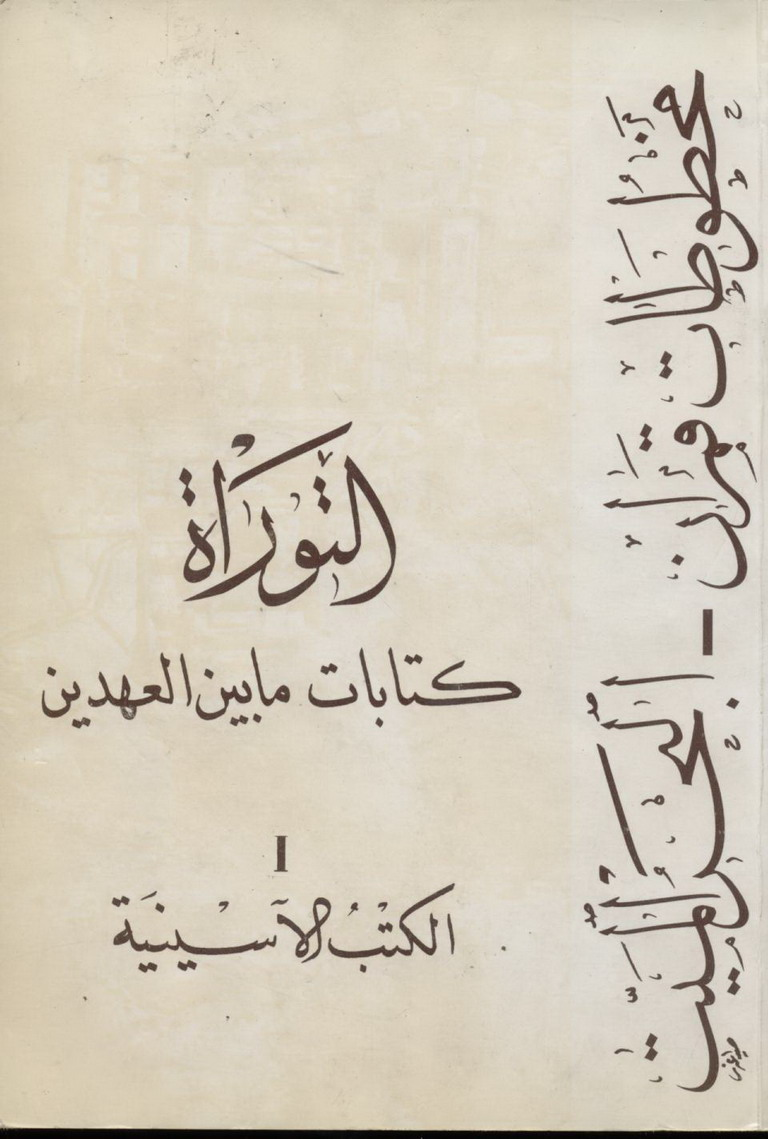 مخطوطات قمران - البحر الميت
التوراة
كتابات ما بين العهدين
I
الكتب الآسينية